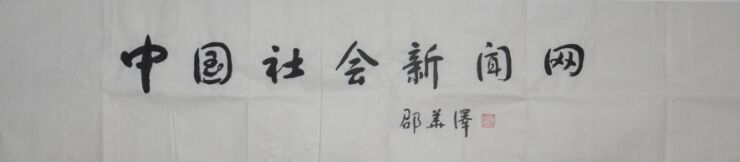 中国社会新闻网
邵华泽